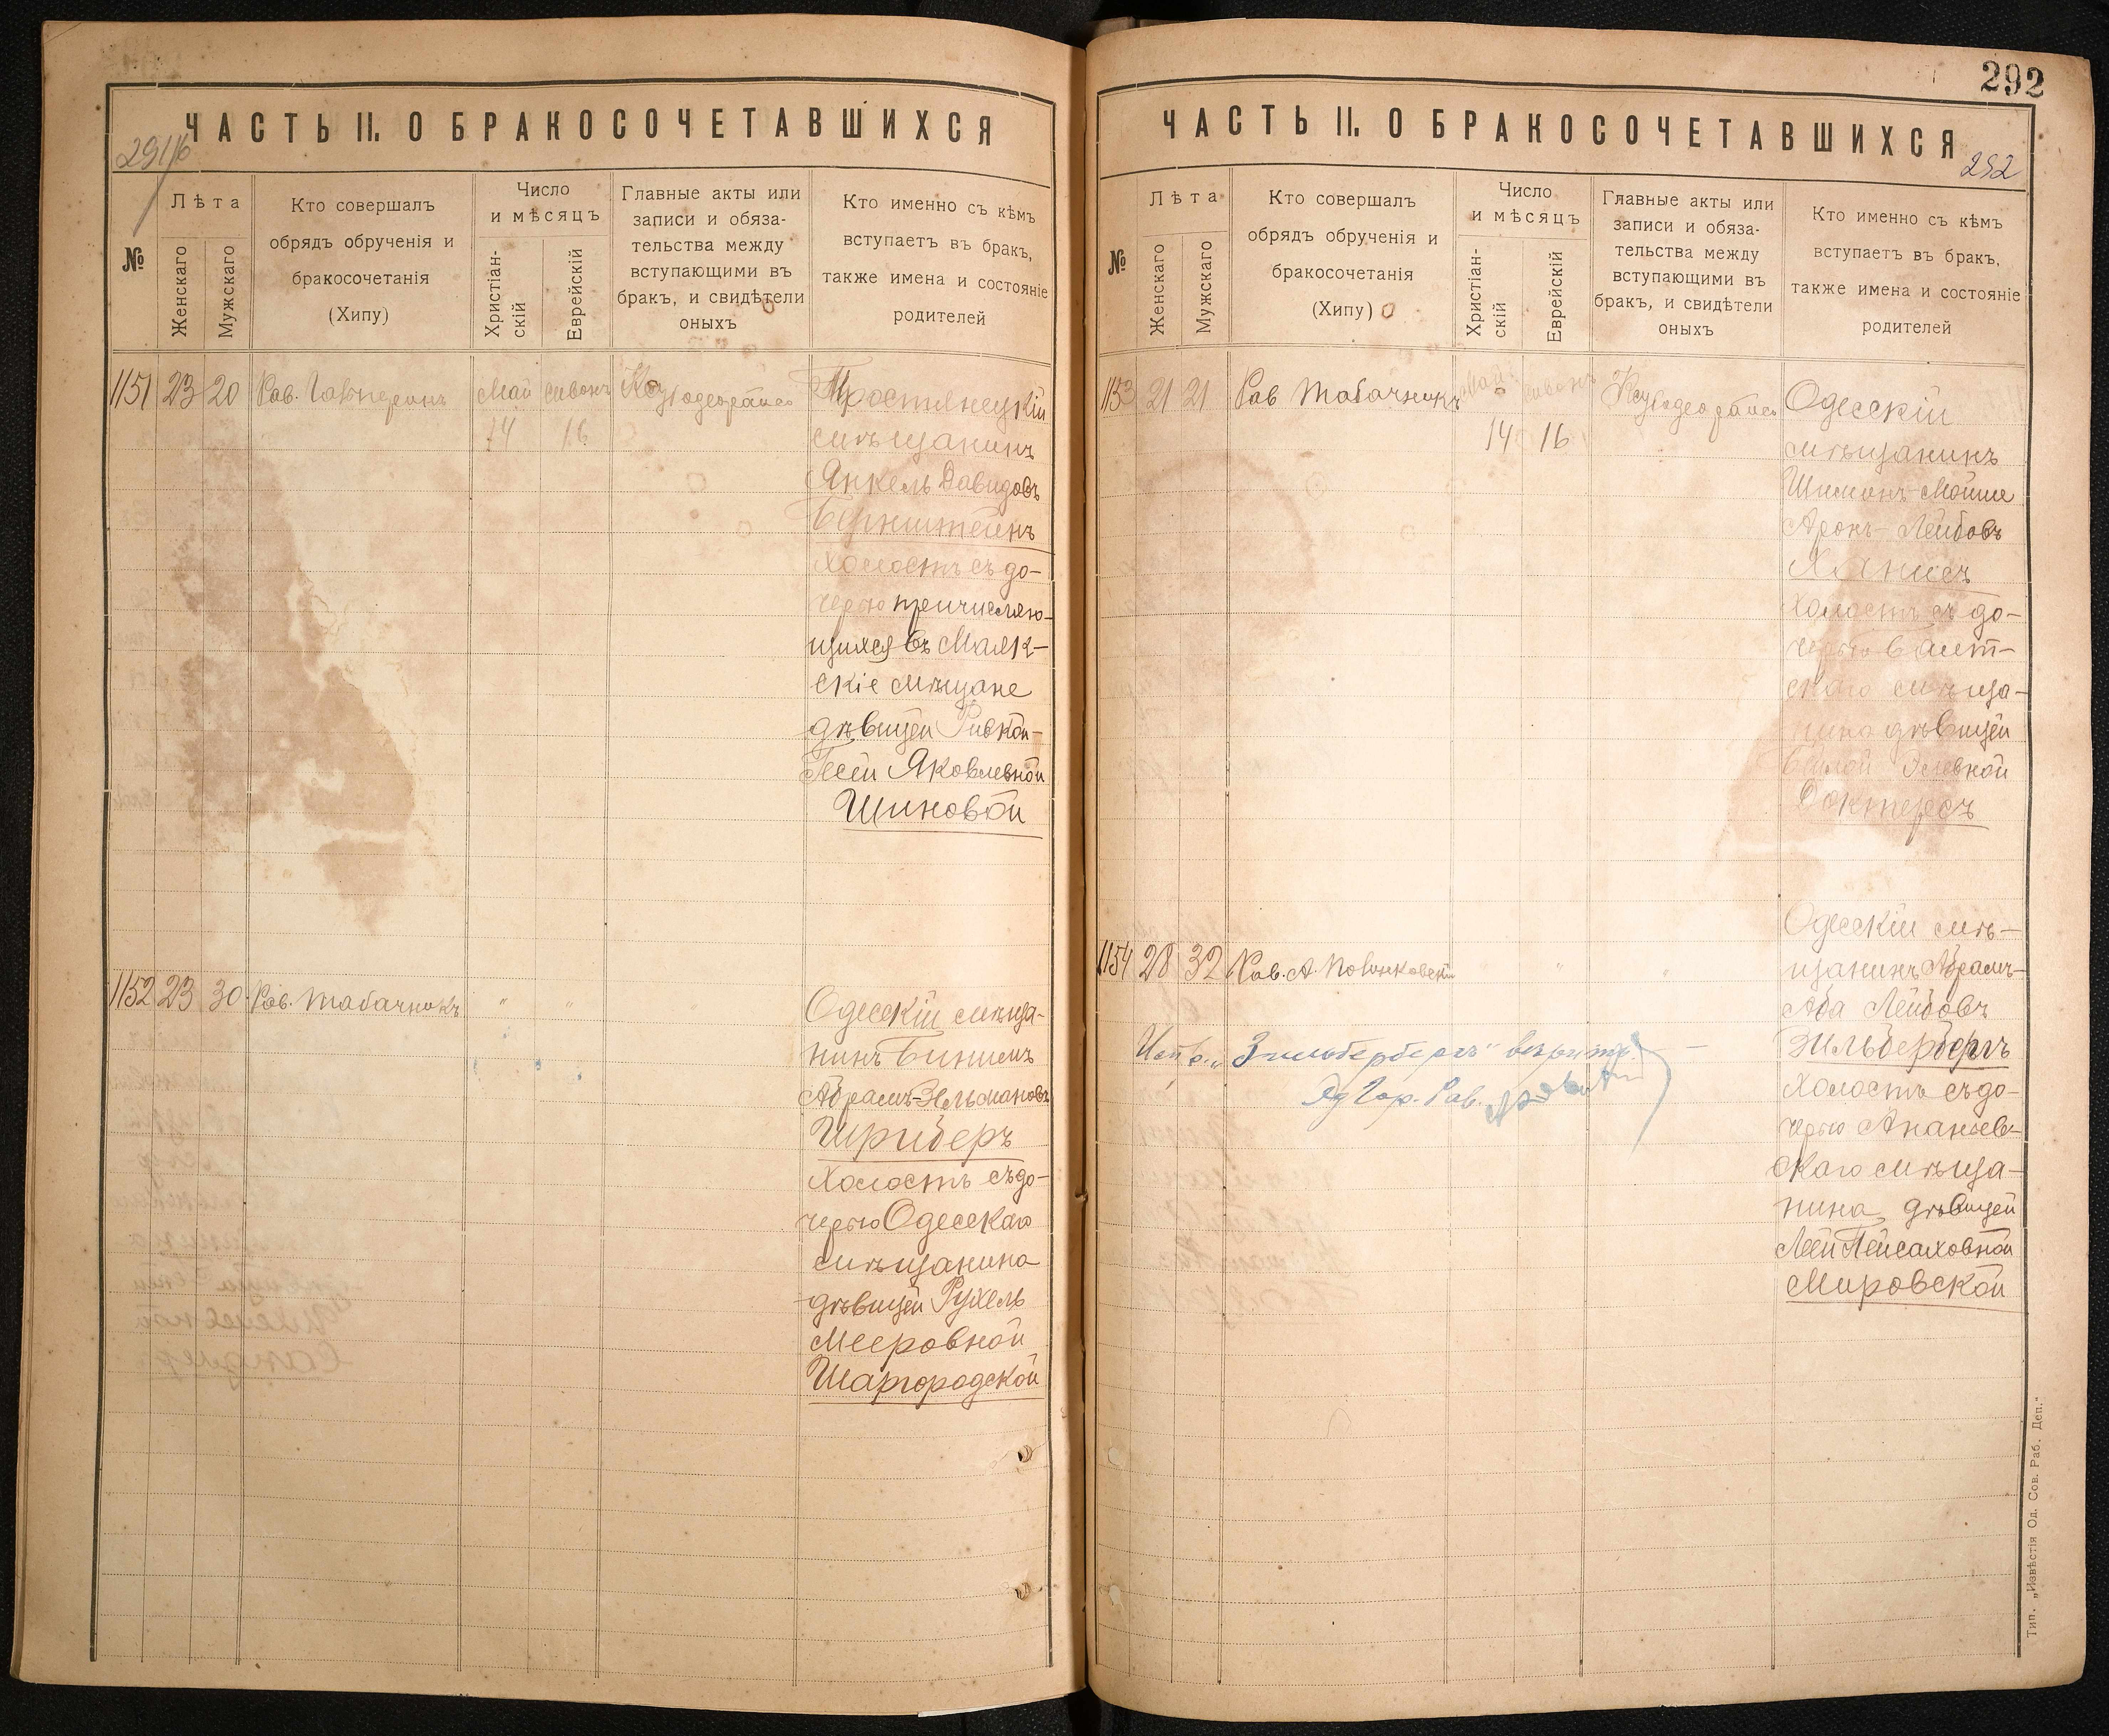 ЧАСТЬ II. О БРАКОСОЧЕТАВШИХСЯ
№
Лѣта
Женскаго
Мужскаго
Кто совершалъ
обрядъ обрученія и
бракосочетанія
(Хипу)
Число
и мѣсяцъ
Христіан-
скій
Еврейскій
Главные акты или
записи и обяза-
тельства между
вступающими въ
бракъ, и свидѣтели
оныхъ
Кто именно съ кѣмъ
вступаетъ въ бракъ,
также имена и состояніе
родителей
1151 23 20 Рав. Гальперинъ Май сивонъ
14 16
Тростянецкій
мѣщанинъ
Янкель Давидовъ
Бернштейнъ
холостъ съ до-
черью причисляю-
щихся въ Маяк-
скіе мѣщане
дѣвицей Ривкой-
Песей Яковлевной
Шиновой
1152 23 30 Рав. Табачникъ " "
Одесскій мѣща-
нинъ Бинимъ
Абрамъ-Зельмановъ
Шриберъ
холостъ съ до-
черью Одесскаго
мѣщанина
дѣвицей Рухель
Мееровной
Шаргородской
292
ЧАСТЬ II. О БРАКОСОЧЕТАВШИХСЯ
292
№
Лѣта
Женскаго
Мужскаго
Кто совершалъ
обрядъ обрученія и
бракосочетанія
(Хипу)
Число
и мѣсяцъ
Христіан-
скій
Еврейскій
Главные акты или
записи и обяза-
тельства между
вступающими въ
бракъ, и свидѣтели
оныхъ
Кто именно съ кѣмъ
вступаетъ въ бракъ,
также имена и состояніе
родителей
1153 21 21 Рав Табачникъ Май сивонъ
14 16
Одесскій
мѣщанинъ
Шимонъ-Мойше
Аронъ-Лейбовъ
холостъ съ до-
черью Балт-
скаго мѣща-
нина дѣвицей
Бейлой Элевной
Доктересъ
1154 28 32 Рав. А. Полинковскій " "
Одесскій мѣ-
щанинъ Абрамъ-
Аба Лейбовъ
Зильбербергъ
холостъ съ до-
черью Ананьев-
скаго мѣща-
нина дѣвицей
Леей Пейсаховной
Мировской
"Зильбербергъ"
Гор. Рав.
Тип. „Извѣстія Од. Сов. Раб. Деп."